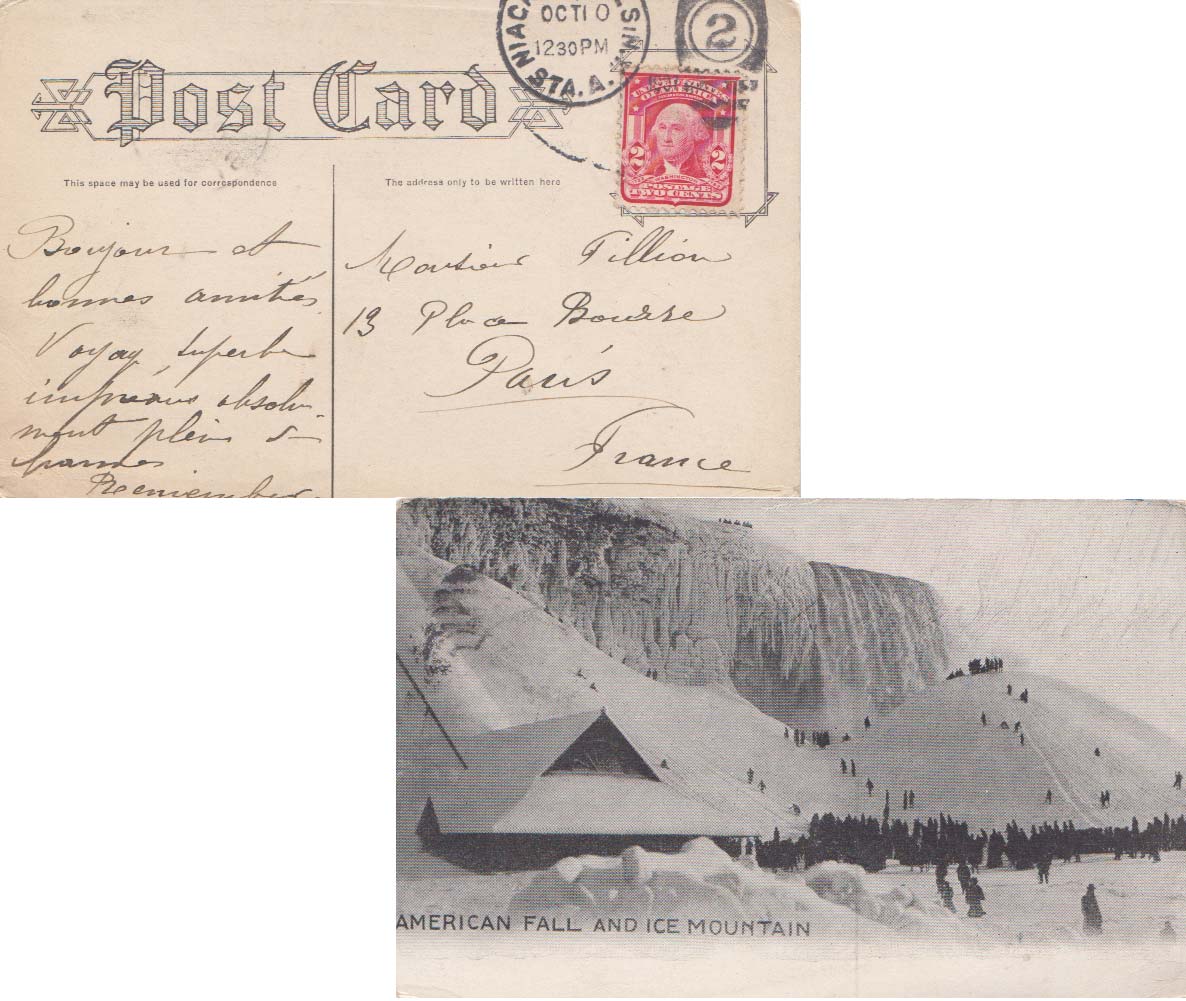 Post Card
NIAGA
SIN
OCT 10
1230PM
STA. A.
2
UNITED STATES
OF AMERICA
2 2
WASHINGTON
POSTAGE
TWO CENTS
This space may be used for correspondence
The address only to be written here
Bonjour et
bonnes amitiés
Voyag superbe
imprévus absolu-
ment plein de
pannes
Monsieur Tillion
13 Place Bourse
Paris
France
AMERICAN FALL AND ICE MOUNTAIN